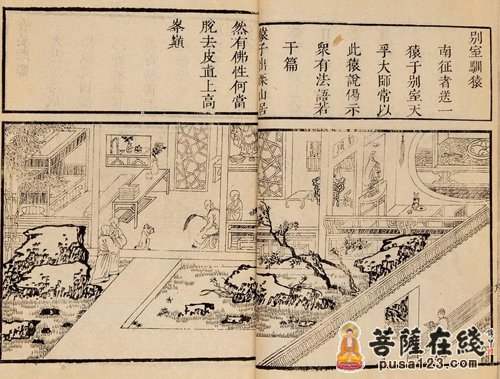 别室馴猿
南征者送一
猿于别室天
孚大師常以
此猿說偈示
衆有法語若
干篇
猿子山居
然有佛性何當
脫去皮直上高
峯巔
菩薩在綫
www.pusa123.com